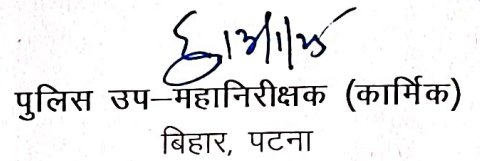 पुलिस उप–महानिरीक्षक (कार्मिक)
बिहार, पटना